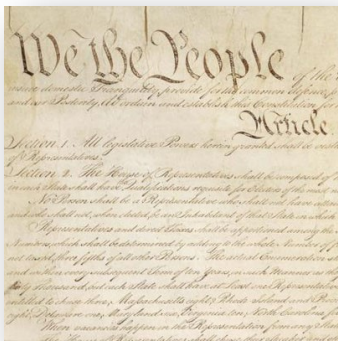 We the People of the
insure domestic Tranquility, provide for the common defence,
and our Posterity, do ordain and establish this Constitution for
Article
Section. 1. All legislative Powers herein granted shall be vested
of Representatives.
Section. 2. The House of Representatives shall be composed of
in each State shall have the Qualifications requisite for Electors of the most
No Person shall be a Representative who shall not have attained
and who shall not, when elected, be an Inhabitant of that State in which
Representatives and direct Taxes shall be apportioned among the
Numbers, which shall be determined by adding to the whole Number of
not taxed, three fifths of all other Persons. The actual Enumeration
and within every subsequent Term of ten Years, in such Manner as
thirty Thousand, but each State shall have at Least one Representative
entitled to chuse three, Massachusetts eight, Rhode Island and
eight, Delaware one, Maryland six, Virginia ten, North Carolina
When vacancies happen in the Representation from any